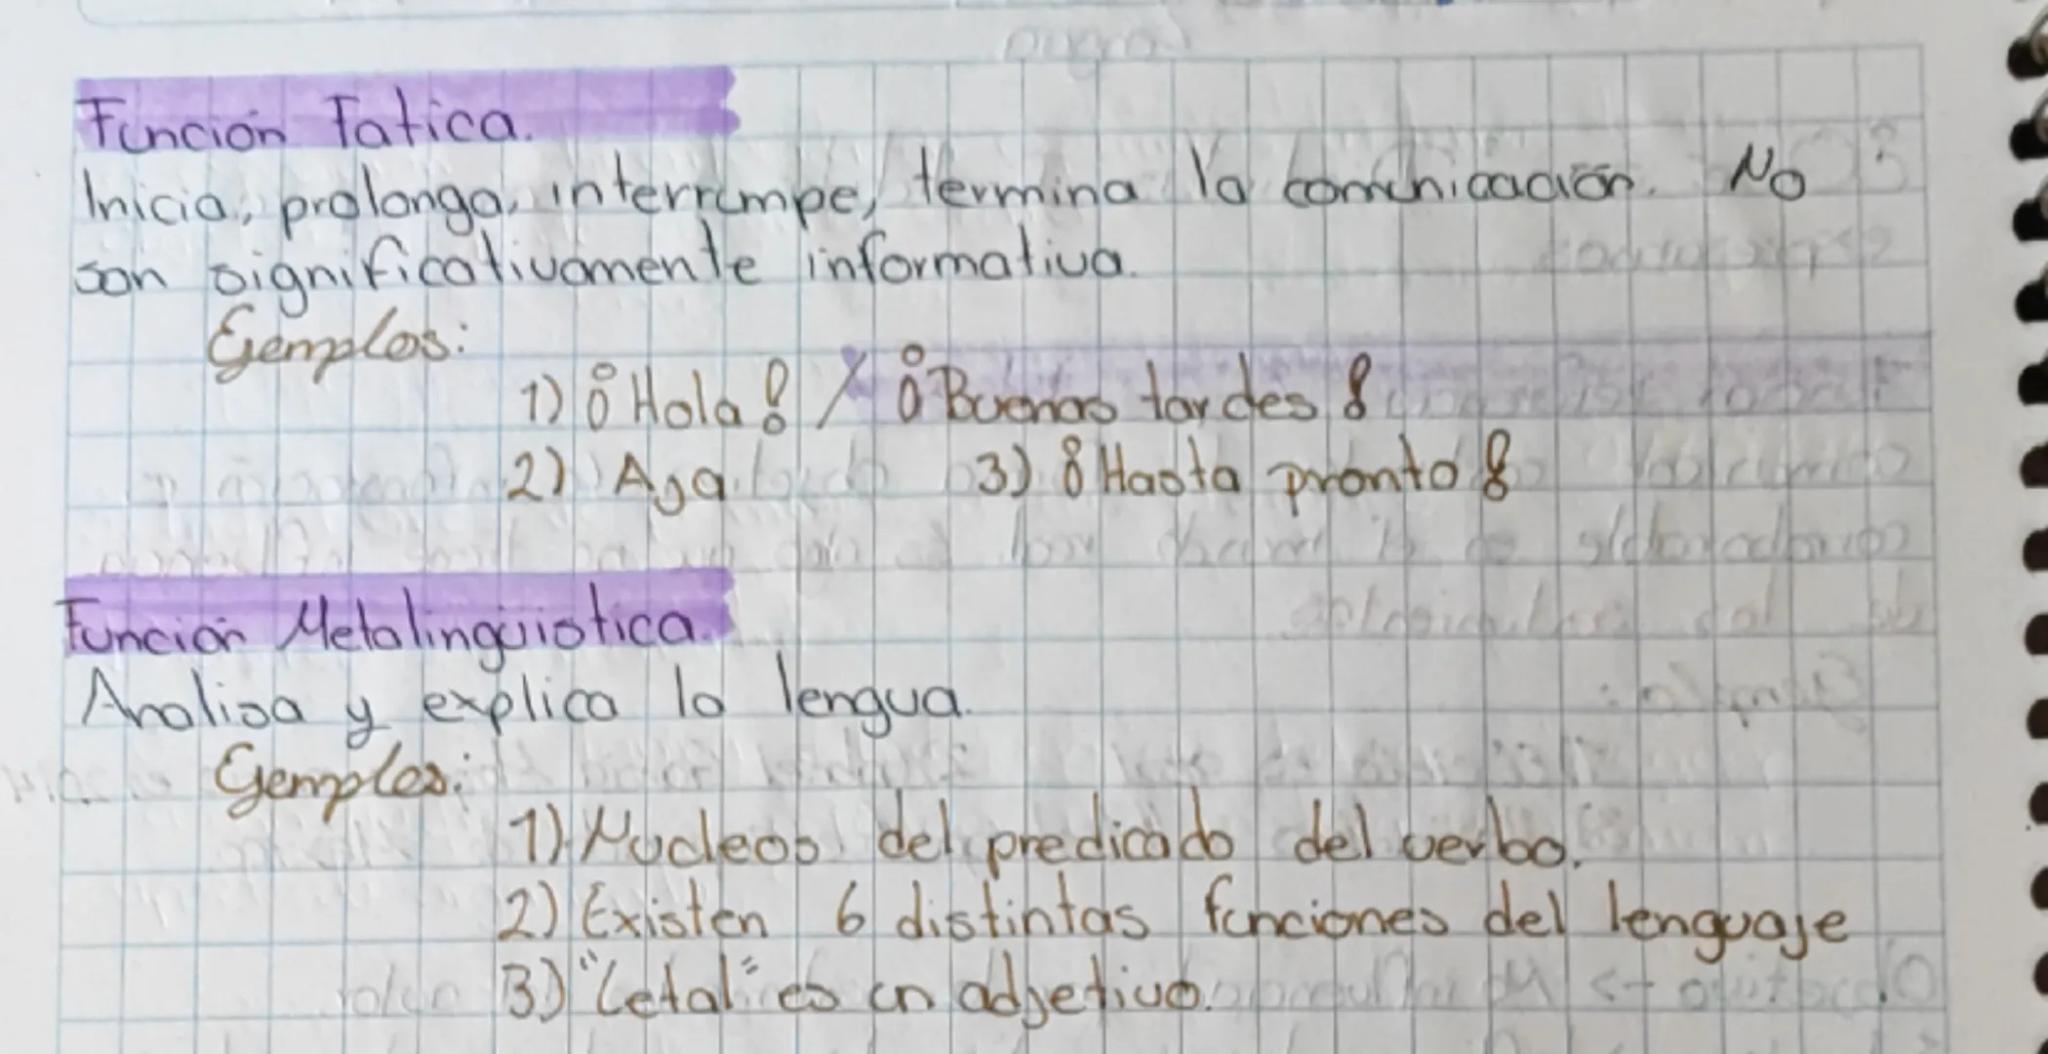 Función Fatica.
Inicia, prolonga, interrumpe, termina la comunicación. No
son significativamente informativa.
Ejemplos:
1) ¡Hola! / ¡Buenas tardes!
2) Aja 3) ¡Hasta pronto!
Función Metalingüistica.
Analisa y explica la lengua.
Ejemplos:
1) Nucleos del predicado del verbo.
2) Existen 6 distintas funciones del lenguaje
3) "Letal" es un adjetivo.